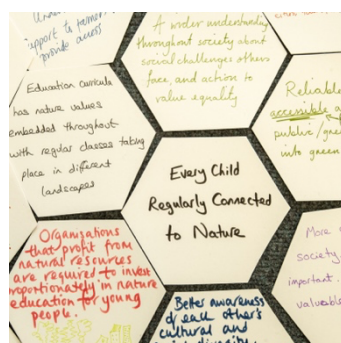 support to
provide access
A wider understanding
throughout society about
social challenges others
face, and action to
value equality
Education curricula
has nature values
embedded throughout
with regular classes taking
place in different
landscapes
Reliable
accessible
public
into green
Every Child
Regularly Connected
to Nature
Organisations
that profit from
natural resources
are required to invest
proportionately in nature
education for young
people.
More
society
important.
Better awareness
of each other's
cultural and